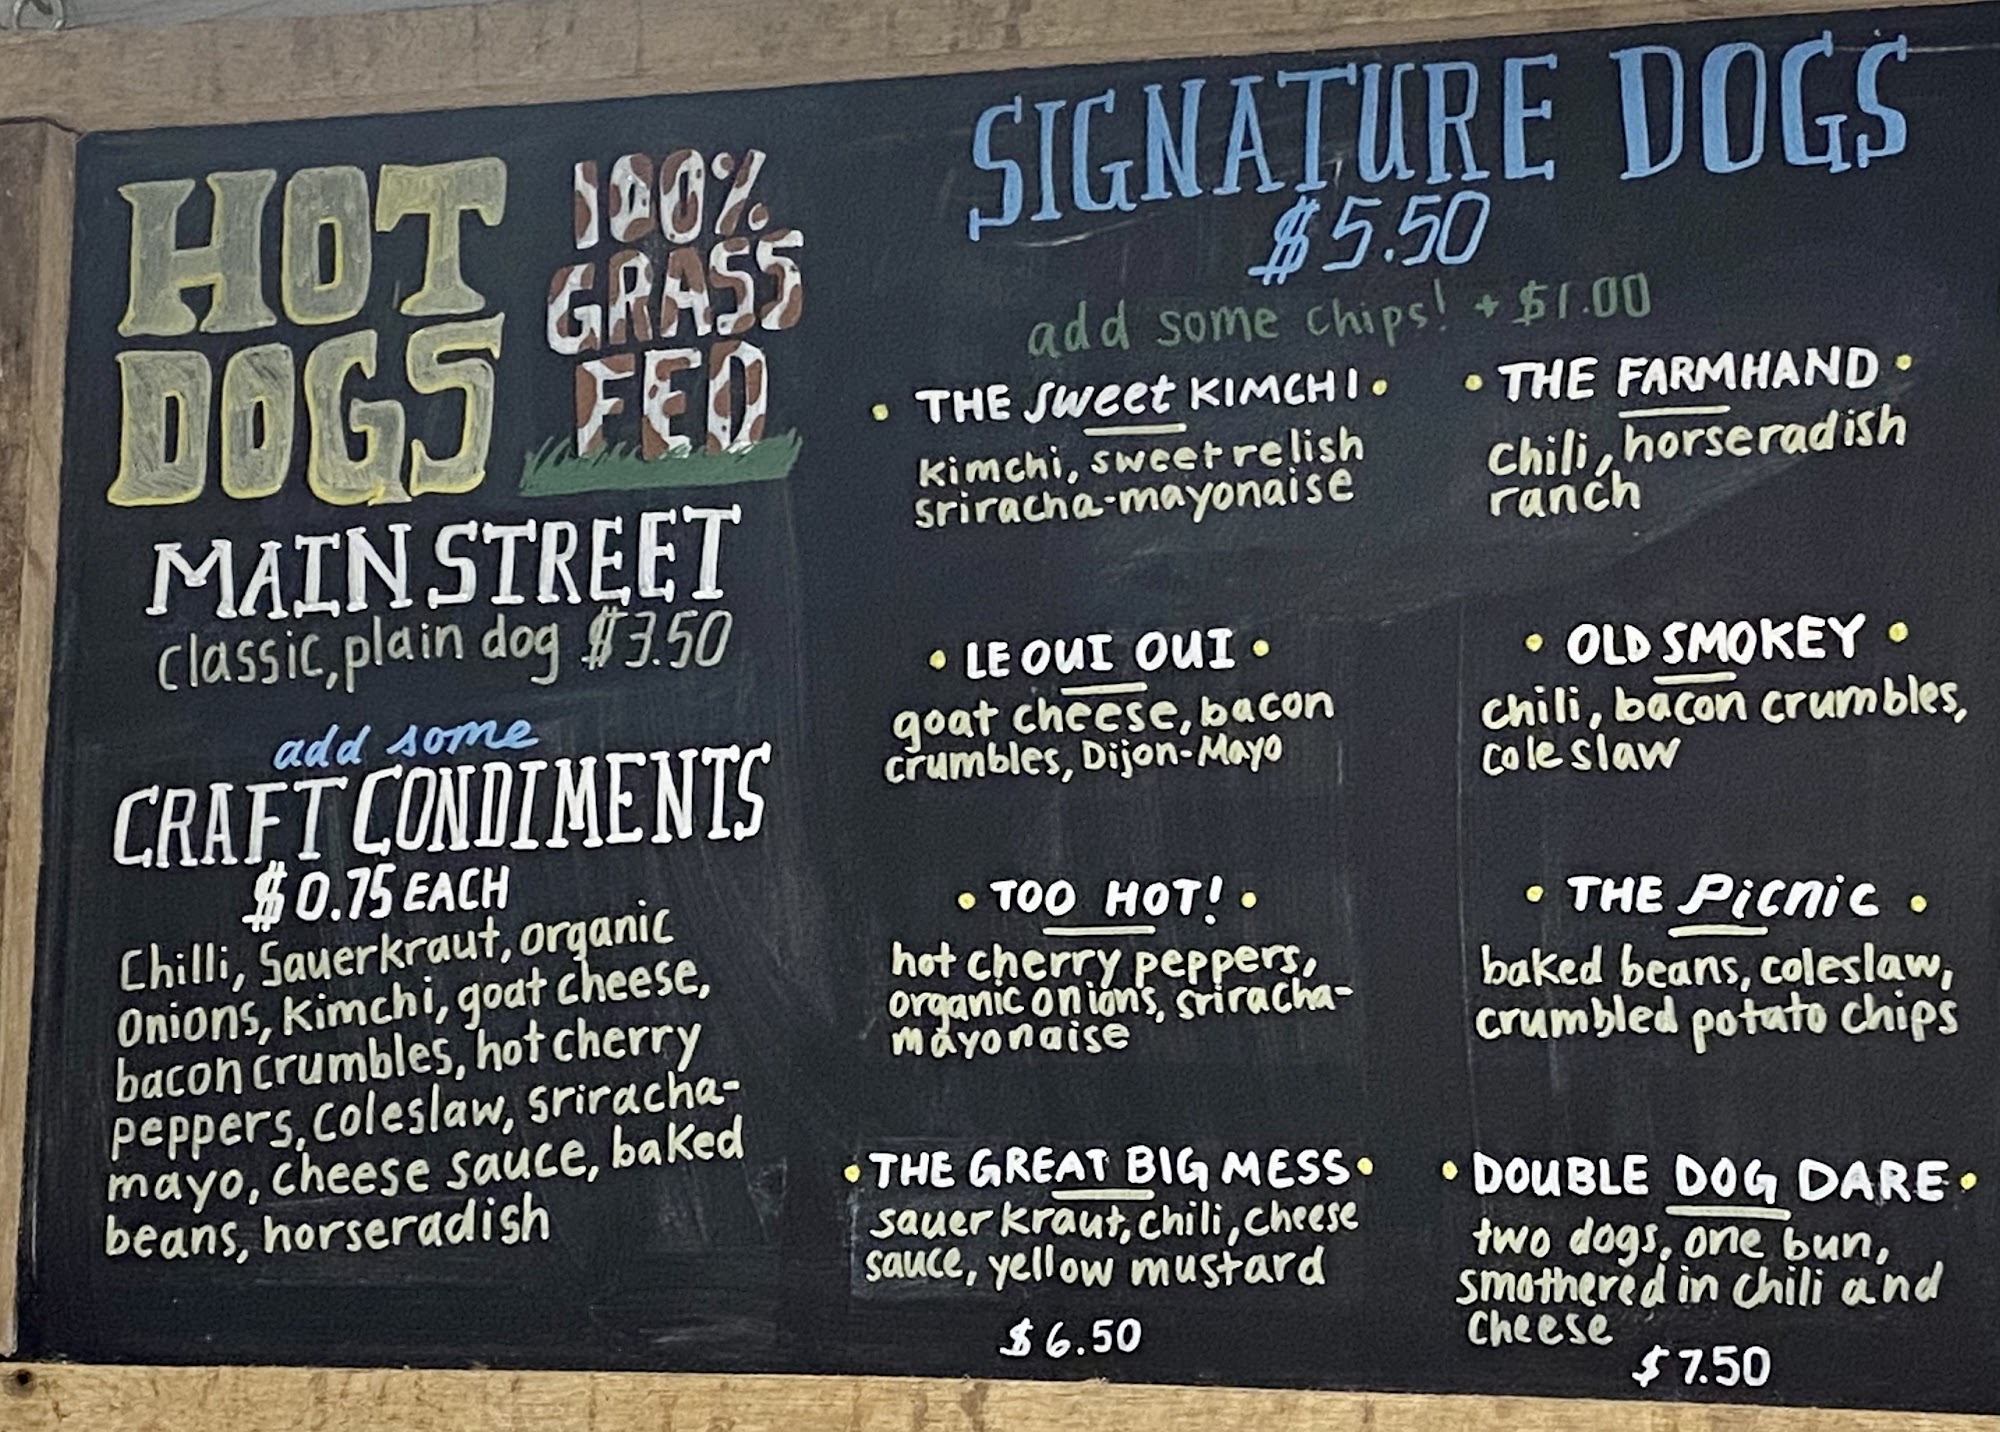 HOT
DOGS
100%
GRASS
FED
MAIN STREET
classic, plain dog $3.50
add some
CRAFT CONDIMENTS
$0.75 EACH
Chilli, Sauerkraut, organic
Onions, Kimchi, goat cheese,
bacon crumbles, hot cherry
peppers, coleslaw, sriracha-
mayo, cheese sauce, baked
beans, horseradish
SIGNATURE DOGS
$5.50
add some chips! + $1.00
• THE sweet KIMCHI •
Kimchi, sweet relish
sriracha-mayonaise
• THE FARMHAND •
Chili, horseradish
ranch
• LE OUI OUI •
goat cheese, bacon
crumbles, Dijon-Mayo
• OLD SMOKEY •
chili, bacon crumbles,
cole slaw
• TOO HOT! •
hot cherry peppers,
organic onions, sriracha-
mayonaise
• THE Picnic •
baked beans, coleslaw,
crumbled potato chips
• THE GREAT BIG MESS •
sauerkraut, chili, cheese
sauce, yellow mustard
$6.50
• DOUBLE DOG DARE •
two dogs, one bun,
smothered in chili and
cheese
$7.50